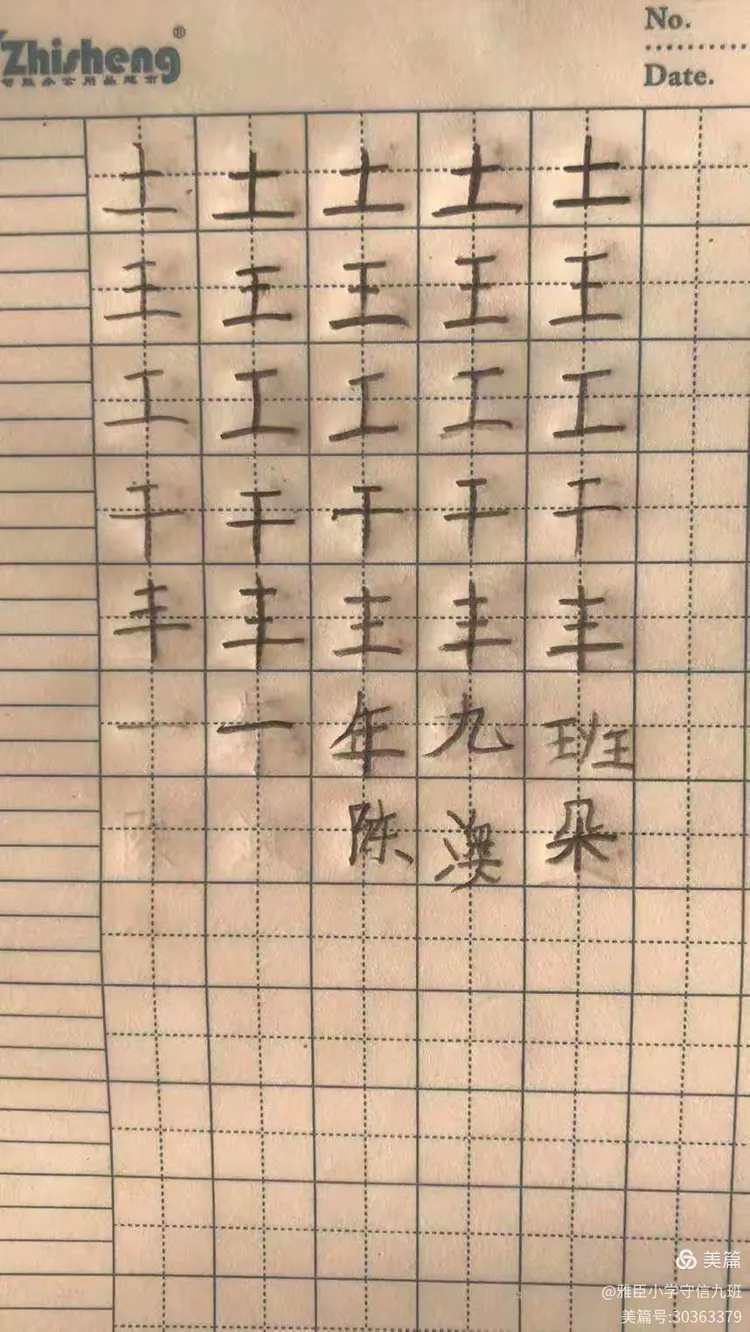 Zhisheng®
No.
Date.
土土土土土
王王王王王
工工工工工
干干干干干
丰丰丰丰丰
一一年九班
陈澳朵
美篇
@雅臣小学守信九班
美篇号:30363379